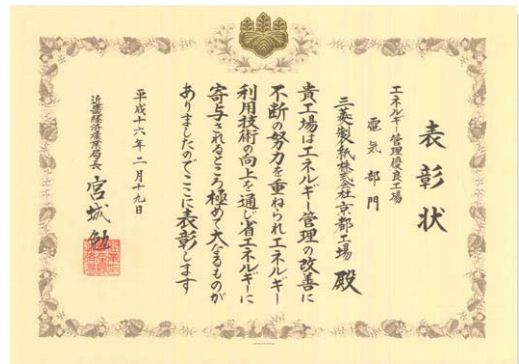 表彰状
エネルギー管理優良工場
電気部門
三菱製紙株式会社京都工場 殿
貴工場はエネルギー管理の改善に
不断の努力を重ねられエネルギー
利用技術の向上を通じ省エネルギーに
寄与されるところ極めて大なるものが
ありましたのでここに表彰します
平成十六年二月十九日
近畿経済産業局長 宮城勉